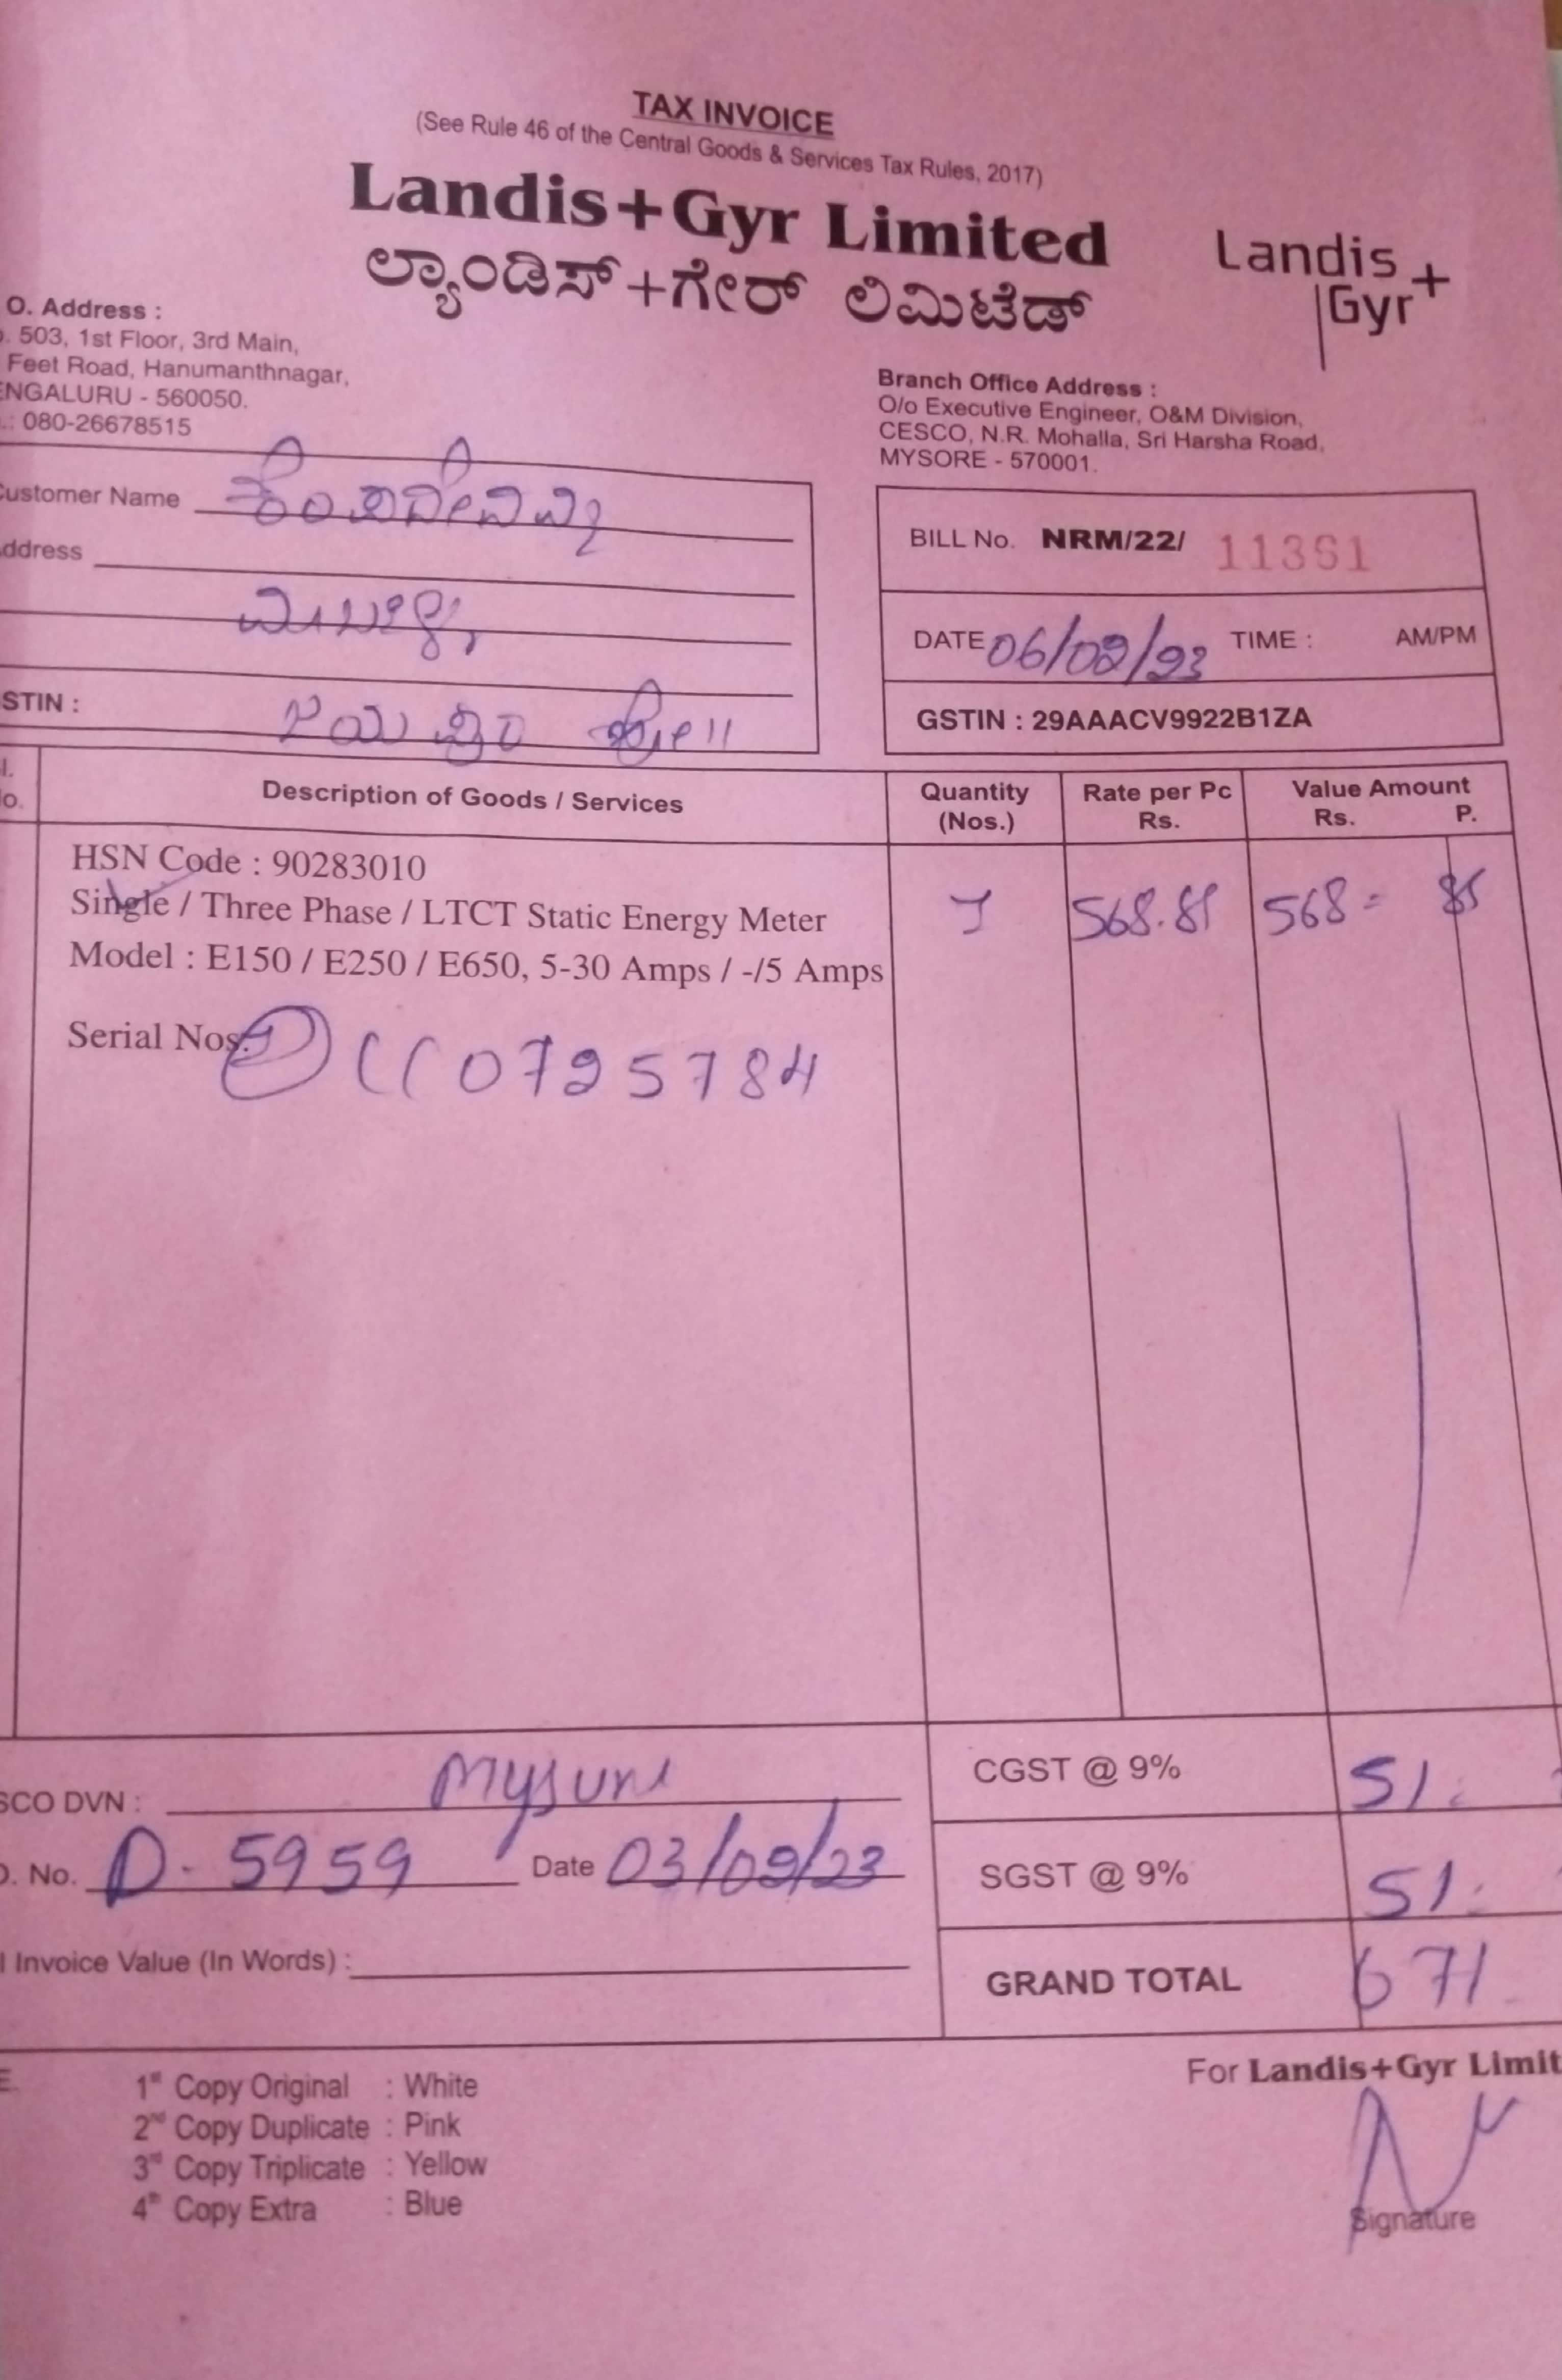 TAX INVOICE
(See Rule 46 of the Central Goods & Services Tax Rules, 2017)
Landis+Gyr Limited
ಲ್ಯಾಂಡಿಸ್+ಗೇರ್ ಲಿಮಿಟೆಡ್
Landis+
Gyr
O. Address :
503, 1st Floor, 3rd Main,
Feet Road, Hanumanthnagar,
ENGALURU - 560050.
.: 080-26678515
Branch Office Address :
O/o Executive Engineer, O&M Division,
CESCO, N.R. Mohalla, Sri Harsha Road,
MYSORE - 570001.
Customer Name
ddress
STIN :
BILL No. NRM/22/ 11361
DATE 06/09/23 TIME : AM/PM
GSTIN : 29AAACV9922B1ZA
Description of Goods / Services
Quantity (Nos.)
Rate per Pc Rs.
Value Amount Rs. P.
HSN Code : 90283010
Single / Three Phase / LTCT Static Energy Meter 1 568.85 568= 85
Model : E150 / E250 / E650, 5-30 Amps / -/5 Amps
Serial Nos. 0725784
SCO DVN : Mysuru
CGST @ 9% 51
. No. D- 5959 Date 03/09/23
SGST @ 9% 51
Invoice Value (In Words) :
GRAND TOTAL 671
E.
1st Copy Original : White
2nd Copy Duplicate : Pink
3rd Copy Triplicate : Yellow
4th Copy Extra : Blue
For Landis+Gyr Limit
Signature